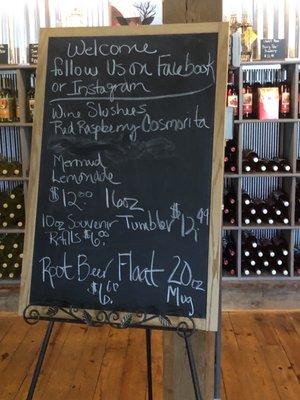 Welcome
follow Us on Facebook
or Instagram
Wine Slushees
Red Raspberry-Cosmorita
Mermaid
Lemonade
$12.00 16oz
10oz Souvenir Tumbler $12.49
Refills $6.00
Root Beer Float 20oz
$6.00 Mug